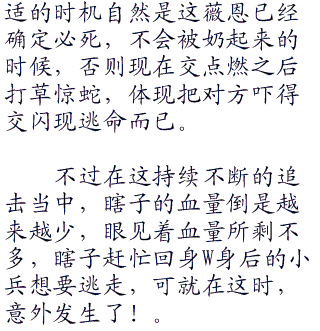 适的时机自然是这薇恩已经
确定必死，不会被奶起来的
时候，否则现在交点燃之后
打草惊蛇，体现把对方吓得
交闪现逃命而已。
　　不过在这持续不断的追
击当中，瞎子的血量倒是越
来越少，眼见着血量所剩不
多，瞎子赶忙回身W身后的小
兵想要逃走，可就在这时，
意外发生了！。